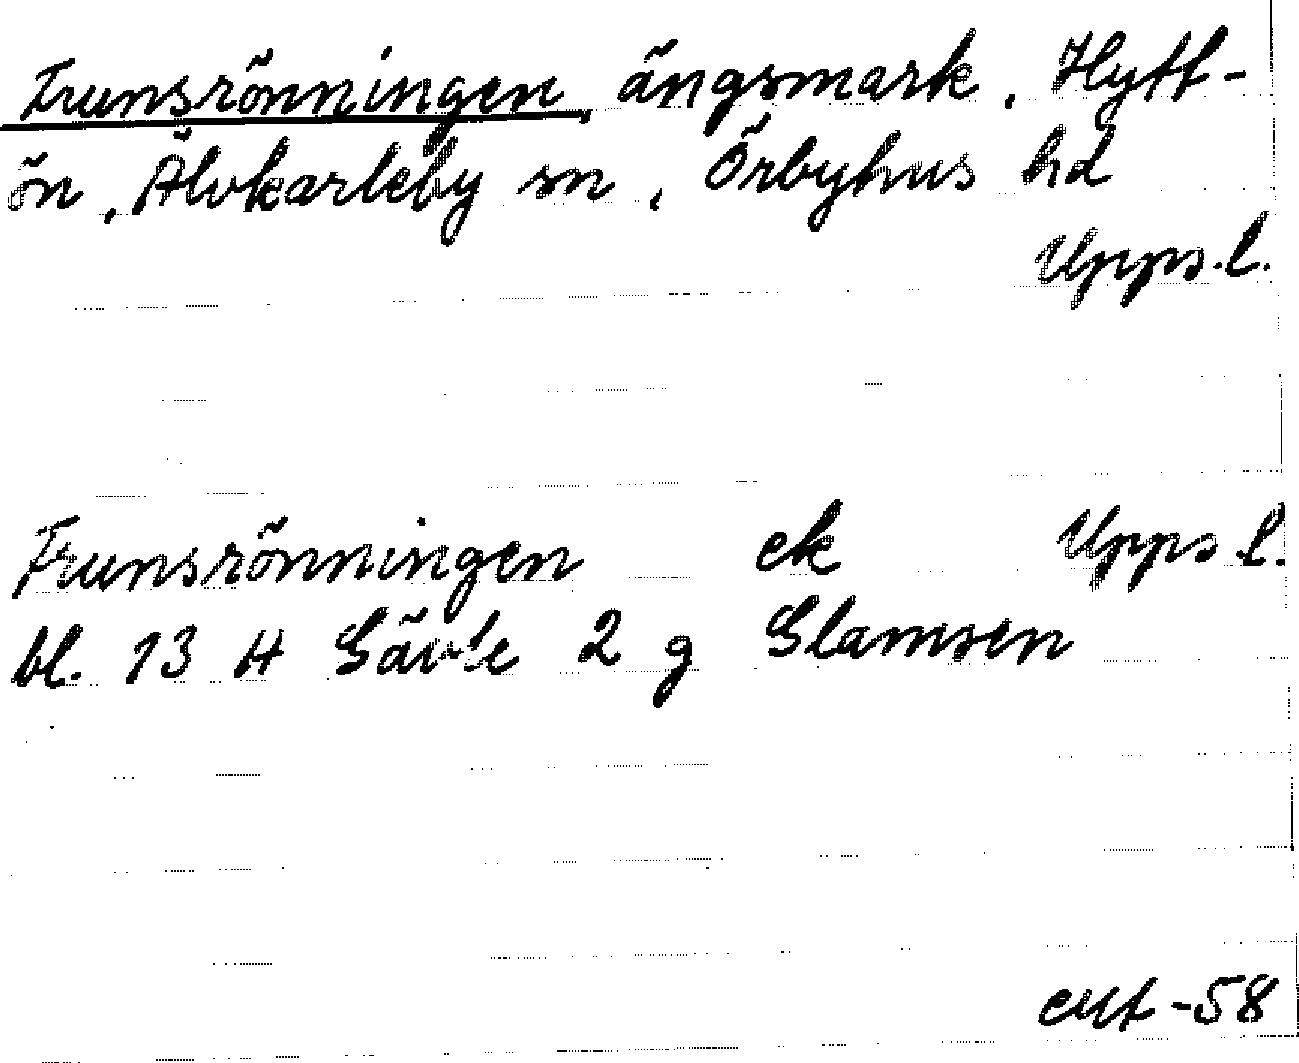 Frunsrönningen, ängsmark, Hytt-
ön, Älvkarleby sn, Örbyhus hd
Upps.l.
Frunsrönningen ek Upps.l.
bl. 13 H Gävle 2 g Glamsen
-58